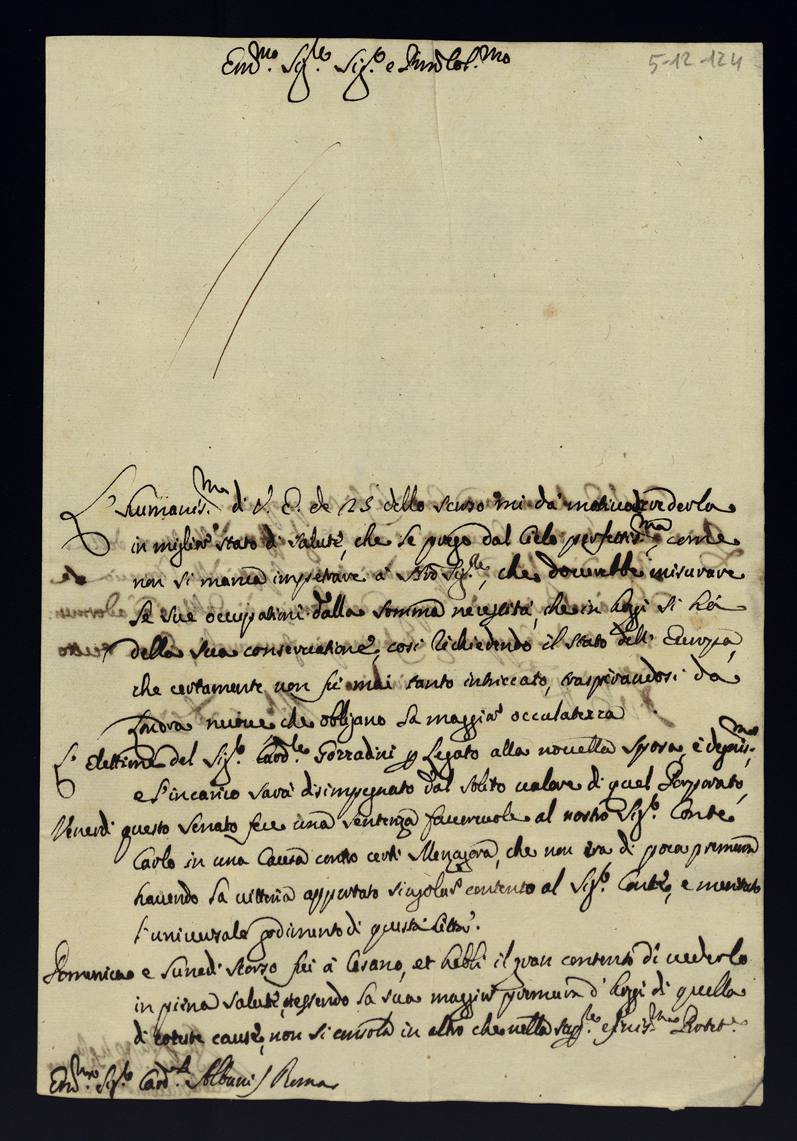 Em.mo Sig.re Sig.re e P.ron Col.mo
5-12-124
L'humaniss.ma di V. E. de 25 dello scorso mi dà motivo crederla
in miglior stato di salute, che le prego dal Cielo perfettiss.ma come
non si manca impetrare à Sig.re, che dovrebbe misurare
le sue occupationi dalla somma necessità, che in hoggi si hà
della sua conservatione, così richiedendo il stato dell' Europa,
che certamente non fù mai tanto intriccato, traspirandosi da
Londra nuove che obligano la maggior occulatezza
L'Elettione del Sig.r Card.le Gozzadini p Legato alla novella sposa, è degniss.ma
e l'incarico sarà disimpegnato dal solito valore di quel Porporato,
Venerdì questo Senato fece una sentenza favorevole al nostro Sig.r Conte
Carlo in una Causa contro certi, che non era di poca premura
havendo la vittoria apportato singolar contento al Sig.r Conte, e meritato
l'universale godimento di questa Città.
Domenica e Lunedì scorso fui à Cesano, et hebbi il gran contento di vederlo
in piena salute, essendo la sua maggior premura d'hoggi di quella
di cause, non si consola in altro che nella
Em.mo Sig.r Card.le Albani / Roma